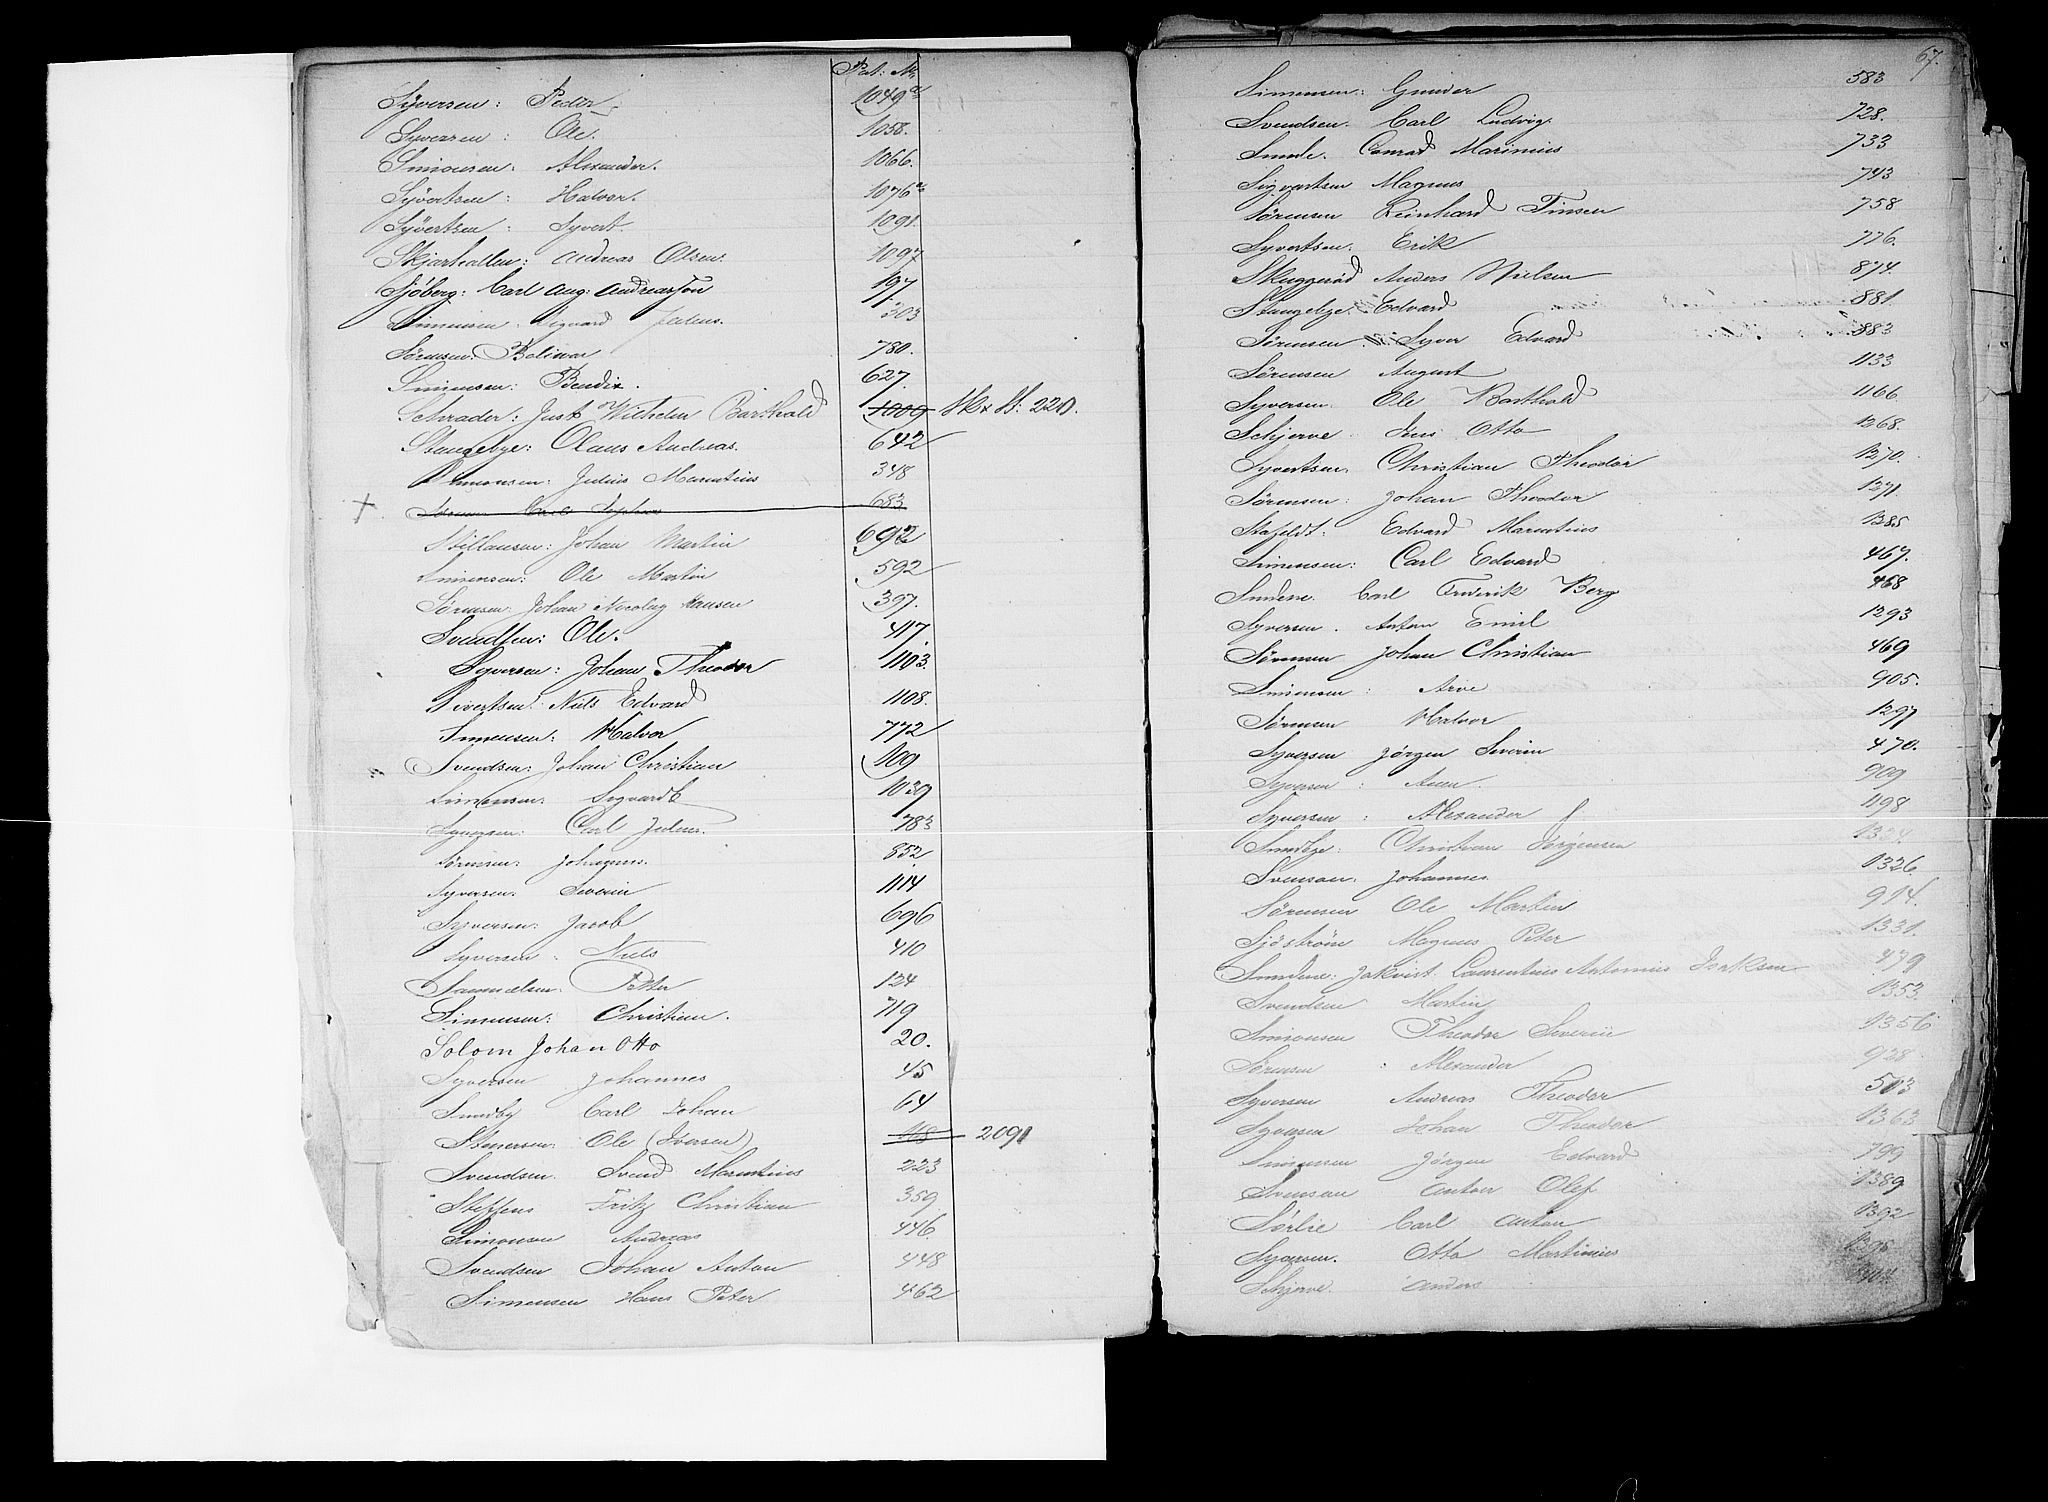 Pat: Nr
Syversen: Peder 1049 a
Syversen: Ole. 1058.
Simonsen: Alexander. 1066
Syvertsen: Halvor. 1076 a
Syvertsen: Syvert. 1091.
Skjærhallen: Andreas Olsen. 1097
Sjöberg: Carl Aug: Andreasson 197
Simensen Sigvard Julius. 303
Sörensen. Bolivar 780.
Simensen: Bendix. 627.
Schrader: Just Wilhelm Barthold 1009 220.
Stangebye: Olaus Andreas. 642
Simonsen: Julius Marentius 348
683
Stillausen: Johan Martin 692
Simensen: Ole Martin 592
Sörensen: Johan Nicolay Hansen 397.
Svendsen: Ole. 417.
Syversen: Johan Theodor 1103.
Syvertsen: Niels Edvard 1108.
Simensen: Halvor 772
Svendsen: Johan Christian 109
Simensen: Sigvard 1039
Syversen: Carl Julius. 783
Sörensen: Johannes. 852
Syversen. Severin 1114
Syversen: Jacob 696
Syversen: Niels 410
Samuelsen: Petter 124
Simensen: Christian. 719
Solom Johan Otto 20.
Syversen Johannes 45
Sundby Carl Johan 64
Stenersen: Ole (Iversen) 168 2091
Svendsen. Svend Marentius 223
Steffens Fritz Christian 359
Simonsen Andreas 446.
Svendsen Johan Anton 448
Simensen Hans Peter 462
67.
Simensen: Gunder 583
Svendsen. Carl Ludvig. 728.
Sunde. Conrad Marinius 733
Sigvartsen Magnus 743
Sörensen Reinhard Tinsen 758
Syvertsen. Erik 776.
Skuggeröd Anders Nielsen 874.
Stangebye. Edvard 881.
Sörensen Syver Edvard 883
Sörensen August 1133
Syversen. Ole Barthold 1166
Schjerve Jens Otto 1268.
Syvertsen. Christian Theodor 1270.
Sörensen: Johan Theodor 1271.
Stafeldt: Edvard Marentius 1285
Simensen: Carl Edvard 467.
Sundene. Carl Fredrik Berg 468
Syversen. Anton Emil 1293
Sörensen Johan Christian 469
Simensen: Arve 905.
Sörensen Halvor 1297
Syversen Jörgen Severin 470.
Syversen: Aren. 909
Syversen: Alexander 1198
Sundbye: Christian Jörgensen 1324
Svenson: Johannes 1326
Sörensen Ole Martin 914.
Sjöström Magnus Peter 1331.
Sundene: Jakvist Laurentius Antonius 479
Svendsen Martin 1353.
Simonsen Theodor Severin 1356
Sörensen: Alexander 928.
Syversen Andreas Theodor 503
Syversen Johan Theodor 1363
Simensen Jörgen Edvard 799
Svenson Anton Olef 1389
Sörlie Carl Anton 1392
Syversen. Otto Martinius
Schjerve Anders